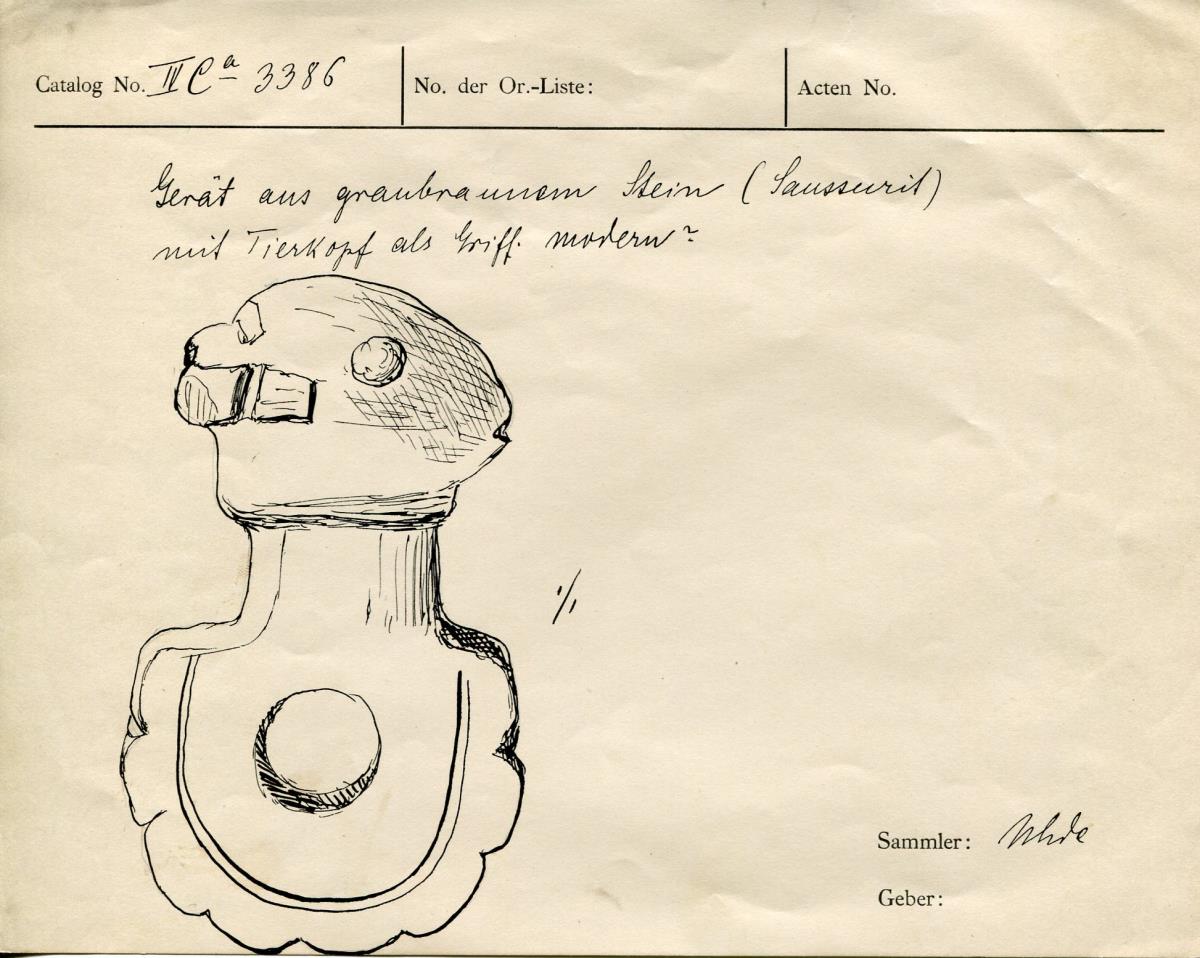 Catalog No. IV Ca 3386
No. der Or.-Liste:
Acten No.
Gerät aus graubraunem Stein (Saussurit)
mit Tierkopf als Griff. modern?
1/1
Sammler: Uhde
Geber: